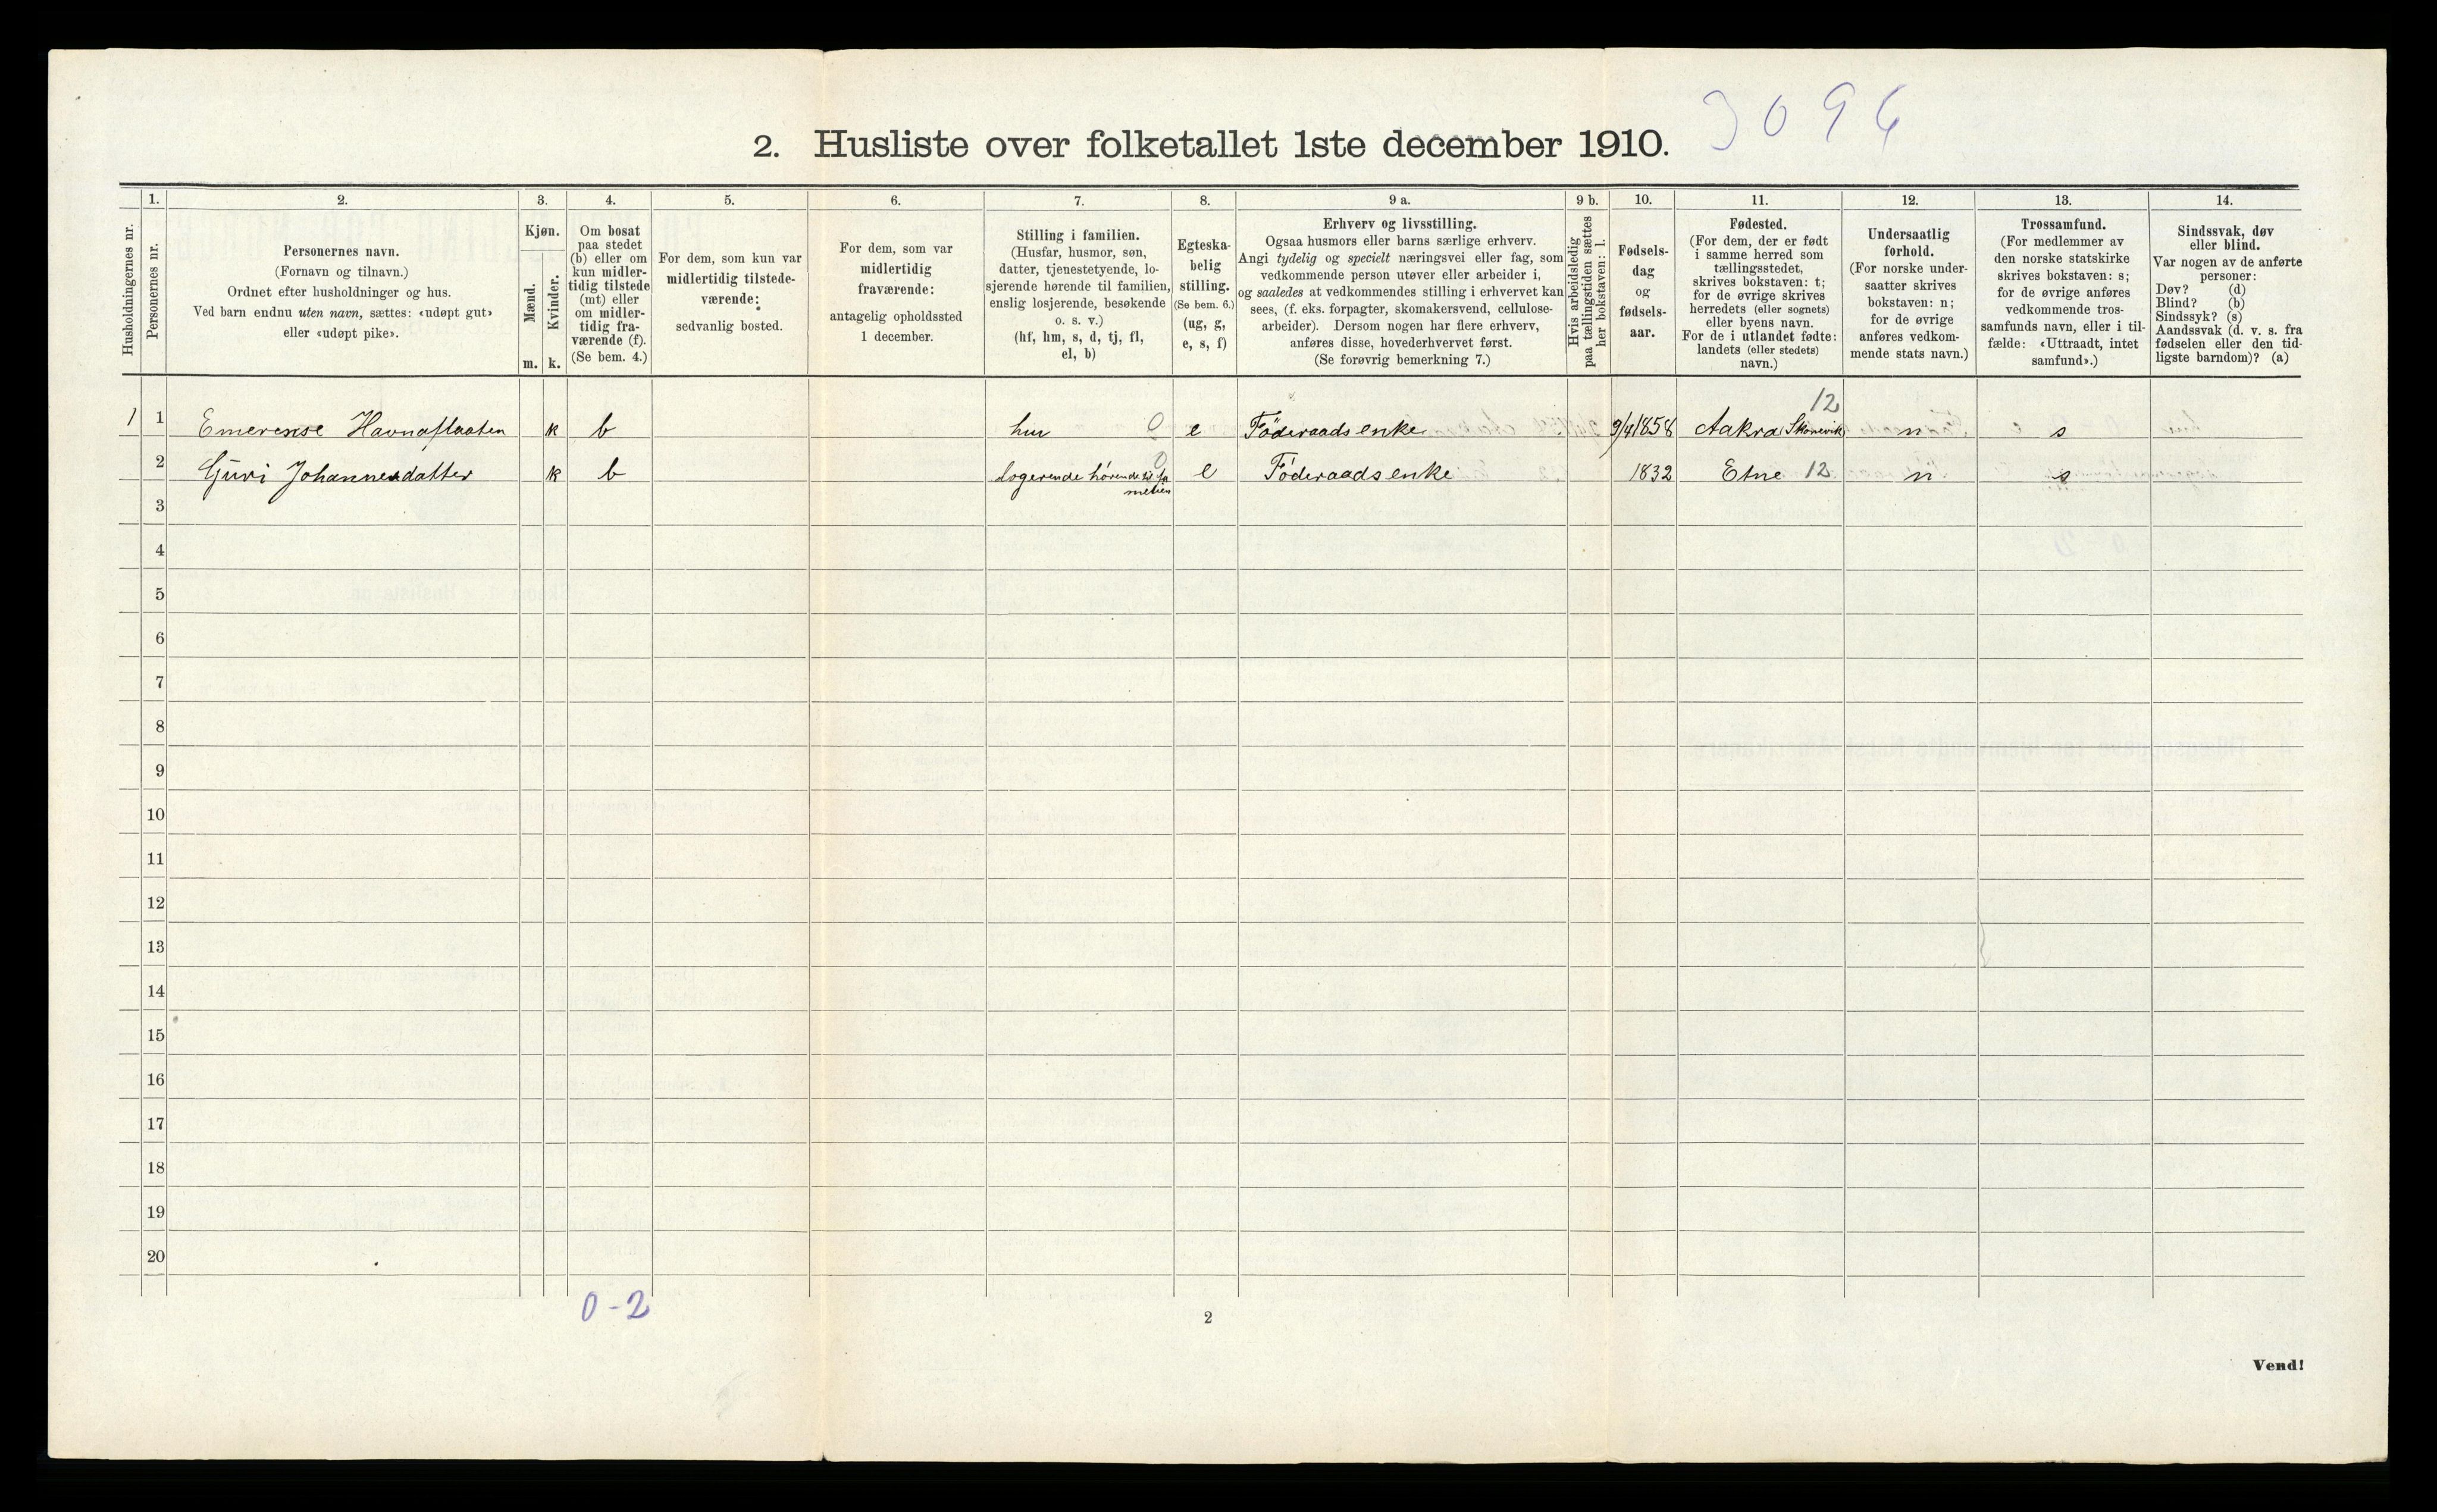 3096
2. Husliste over folketallet 1ste december 1910.
Husholdningernes nr.
1.
Personernes nr.
2.
Personernes navn.
(Fornavn og tilnavn.)
Ordnet efter husholdninger og hus.
Ved barn endnu uten navn, sættes: «udøpt gut»
eller «udøpt pike».
3.
Kjøn.
Mænd.
Kvinder.
m. k.
4.
Om bosat
paa stedet
(b) eller om
kun midler-
tidig tilstede
(mt) eller
om midler-
tidig fra-
værende (f).
(Se bem. 4.)
5.
For dem, som kun var
midlertidig tilstede-
værende:
sedvanlig bosted.
6.
For dem, som var
midlertidig
fraværende:
antagelig opholdssted
1 december.
7.
Stilling i familien.
(Husfar, husmor, søn,
datter, tjenestetyende, lo-
sjerende hørende til familien,
enslig losjerende, besøkende
o. s. v.)
(hf, hm, s, d, tj, fl,
el, b)
8.
Egteska-
belig
stilling.
(Se bem. 6.)
(ug, g,
e, s, f)
9 a.
Erhverv og livsstilling.
Ogsaa husmors eller barns særlige erhverv.
Angi tydelig og specielt næringsvei eller fag, som
vedkommende person utøver eller arbeider i,
og saaledes at vedkommendes stilling i erhvervet kan
sees, (f. eks. forpagter, skomakersvend, cellulose-
arbeider). Dersom nogen har flere erhverv,
anføres disse, hovederhvervet først.
(Se forøvrig bemerkning 7.)
9 b.
Hvis arbeidsledig
paa tællingstiden sættes
her bokstaven: l.
10.
Fødsels-
dag
og
fødsels-
aar.
11.
Fødested.
(For dem, der er født
i samme herred som
tællingsstedet,
skrives bokstaven: t;
for de øvrige skrives
herredets (eller sognets)
eller byens navn.
For de i utlandet fødte:
landets (eller stedets)
navn.)
12.
Undersaatlig
forhold.
(For norske under-
saatter skrives
bokstaven: n;
for de øvrige
anføres vedkom-
mende stats navn.)
13.
Trossamfund.
(For medlemmer av
den norske statskirke
skrives bokstaven: s;
for de øvrige anføres
vedkommende tros-
samfunds navn, eller i til-
fælde: «Uttraadt, intet
samfund».)
14.
Sindssvak, døv
eller blind.
Var nogen av de anførte
personer:
Døv? (d)
Blind? (b)
Sindssyk? (s)
Aandssvak (d. v. s. fra
fødselen eller den tid-
ligste barndom)? (a)
12
1 1 Emerense Havnaflaaten k b hm 0 e Föderaadsenke 9/4 1858 Aakra Skonevik n s
2 Guri Johannesdatter k b logerende hørende til fa 0 e Föderaadsenke 1832 Etne 12 n s
melien
3
4
5
6
7
8
9
10
11
12
13
14
15
16
17
18
19
20
0-2
2
Vend!